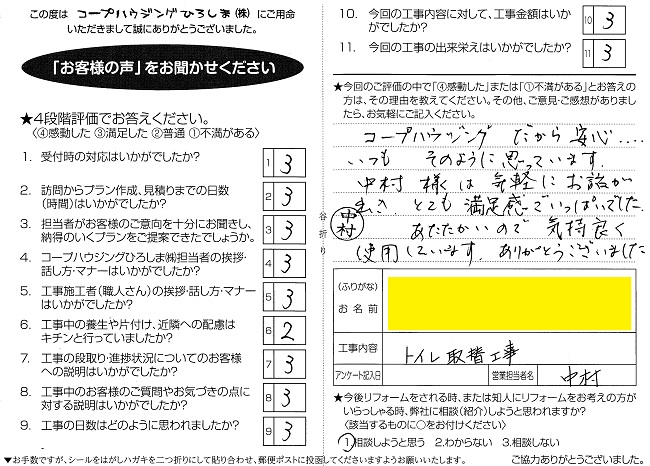 この度は コープハウジングひろしま(株) にご用命
いただきまして誠にありがとうございました。
「お客様の声」をお聞かせください
★4段階評価でお答えください。
〈④感動した ③満足した ②普通 ①不満がある〉
1. 受付時の対応はいかがでしたか? 1 3
2. 訪問からプラン作成、見積りまでの日数
(時間)はいかがでしたか? 2 3
3. 担当者がお客様のご意向を十分にお聞きし、
納得のいくプランをご提案できたでしょうか。 3 3
4. コープハウジングひろしま㈱担当者の挨拶・
話し方・マナーはいかがでしたか? 4 3
5. 工事施工者(職人さん)の挨拶・話し方・マナー
はいかがでしたか? 5 3
6. 工事中の養生や片付け、近隣への配慮は
キチンと行っていましたか? 6 2
7. 工事の段取り・進捗状況についてのお客様
への説明はいかがでしたか? 7 3
8. 工事中のお客様のご質問やお気づきの点に
対する説明はいかがでしたか? 8 3
9. 工事の日数はどのように思われましたか? 9 3
谷折り
10. 今回の工事内容に対して、工事金額はいか
がでしたか? 10 3
11. 今回の工事の出来栄えはいかがでしたか? 11 3
★今回のご評価の中で「④感動した」または「①不満がある」とお答え
の方は、その理由を教えてください。その他、ご意見・ご感想がありまし
たら、お気軽にご記入ください。
コープハウジング だから 安心....
いつも そのように思っています。
中村 様は 気軽に お話が
出き、とても 満足感でいっぱいでした。
中村 あたたかいので 気持良く
使用しています。ありがとうございました
(ふりがな)
お名前
工事内容 トイレ取替工事
アンケート記入日 営業担当者名 中村
★今後リフォームをされる時、または知人にリフォームをお考えの方が
いらっしゃる時、弊社に相談(紹介)しようと思われますか?
〈該当するものに○をお付けください〉
①相談しようと思う 2.わからない 3.相談しない
▼お手数ですが、シールをはがしハガキを二つ折りにして貼り合わせ、郵便ポストに投函してくださいますようお願いいたします。 ご協力ありがとうございました。